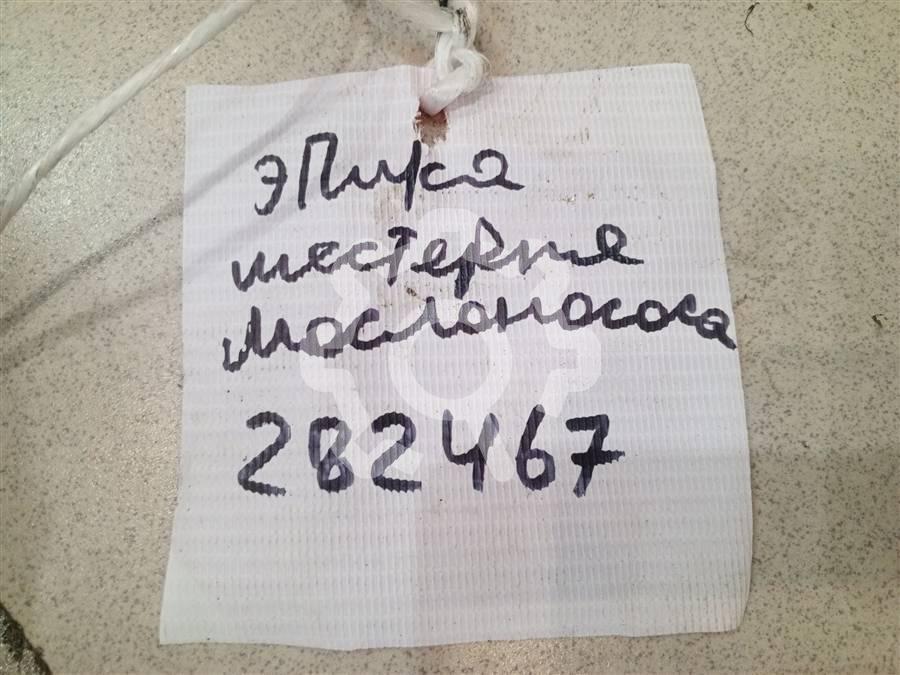 эпика
шестерня
маслонасоса
2В2467